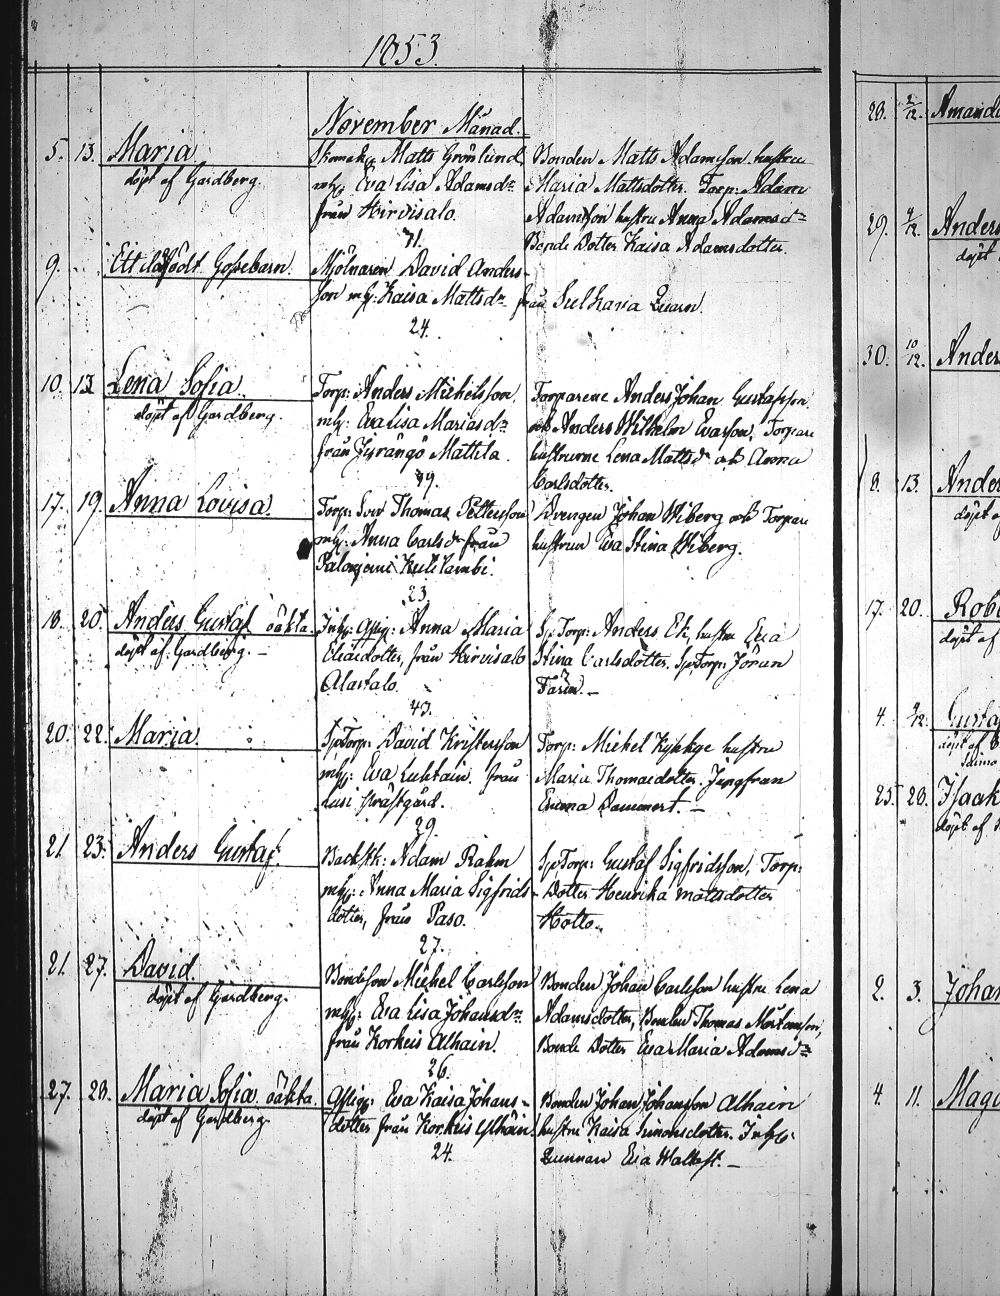 1853.
November Månad.
5. 13. Maria
döpt af Gardberg.
Matts Grönlund
mhg: Eva Lisa Adamsdr
från Hirvisalo.
31.
Bonden Matts Adamsson hustru
Maria Mattsdotter. Torp: Adam
Adamsson hustru Anna Adamsdr
Bonde Dotter Kaisa Adamsdotter.
9. Ett dödfödt Gossebarn.
Mjölnaren David Anders-
son mhg: Kaisa Mattsdr från Sulkava Quarn.
24.
10. 13 Lena Sofia.
döpt af Gardberg.
Torp: Anders Michelsson
mhg: Eva Lisa Mariasdr
från Jyrängö Mattila.
39.
Torparene Anders Johan Gustafsson
och Anders Wilhelm Evasson, Torpare
hustrurne Lena Mattsdr och Anna
Carlsdotter.
17. 19. Anna Lovisa.
Torp: Thomas Pettersson
mhg: Anna Carlsdr från
23.
Drengen Johan Wiberg och Torpare
hustrun Eva Stina Wiberg.
18. 20. Anders Gustaf oäkta.
döpt af Gardberg. –
Inhy: Anna Maria
Eliaedotter, från Hirvisalo
Alastalo.
43.
SpTorp: Anders Eli, hustru Eva
Stina Carlsdotter. SpTorp: Jöran
20. 22. Maria.
SpTorp: David Kristersson
mhg: Eva Luhtain från
Lusi
39.
Torp: Michel hustru
Maria Thomaedotter. Jungfrun
Emma Dammert. –
21. 23. Anders Gustaf.
Backstk: Adam Rahm
mhg: Anna Maria Sigfrids-
dotter, från Paso.
27.
SpTorp: Gustaf Sigfridsson, Torp:
Dotter Henrika Mattsdotter
21. 27. David.
döpt af Gardberg.
Bondeson Michel Carlsson
mhg: Eva Lisa Johansdr
från Korkeis Alhain.
26.
Bonden Johan Carlsson hustru Lena
Adamsdotter, Bonden Thomas
Bonde Dotter Eva Maria Adamsdr
27. 28. Maria Sofia oäkta.
döpt af Gardberg.
Eva Kaisa Johans-
dotter från Korkeis Ylhäin.
24.
Bonden Johan Johansson Alhain
hustru Kaisa Simonsdotter. Inhy:
Quinnan Eva
28. 2/12. Amanda
29. 4/12. Anders
döpt
30. 10/12. Ander
8. 13. Ander
döpt a
17. 20. Rob
döpt af
4. Gusta
döpt af
25. 28. Isaak
döpt af
2. 3. Johan
4. 11. Mag